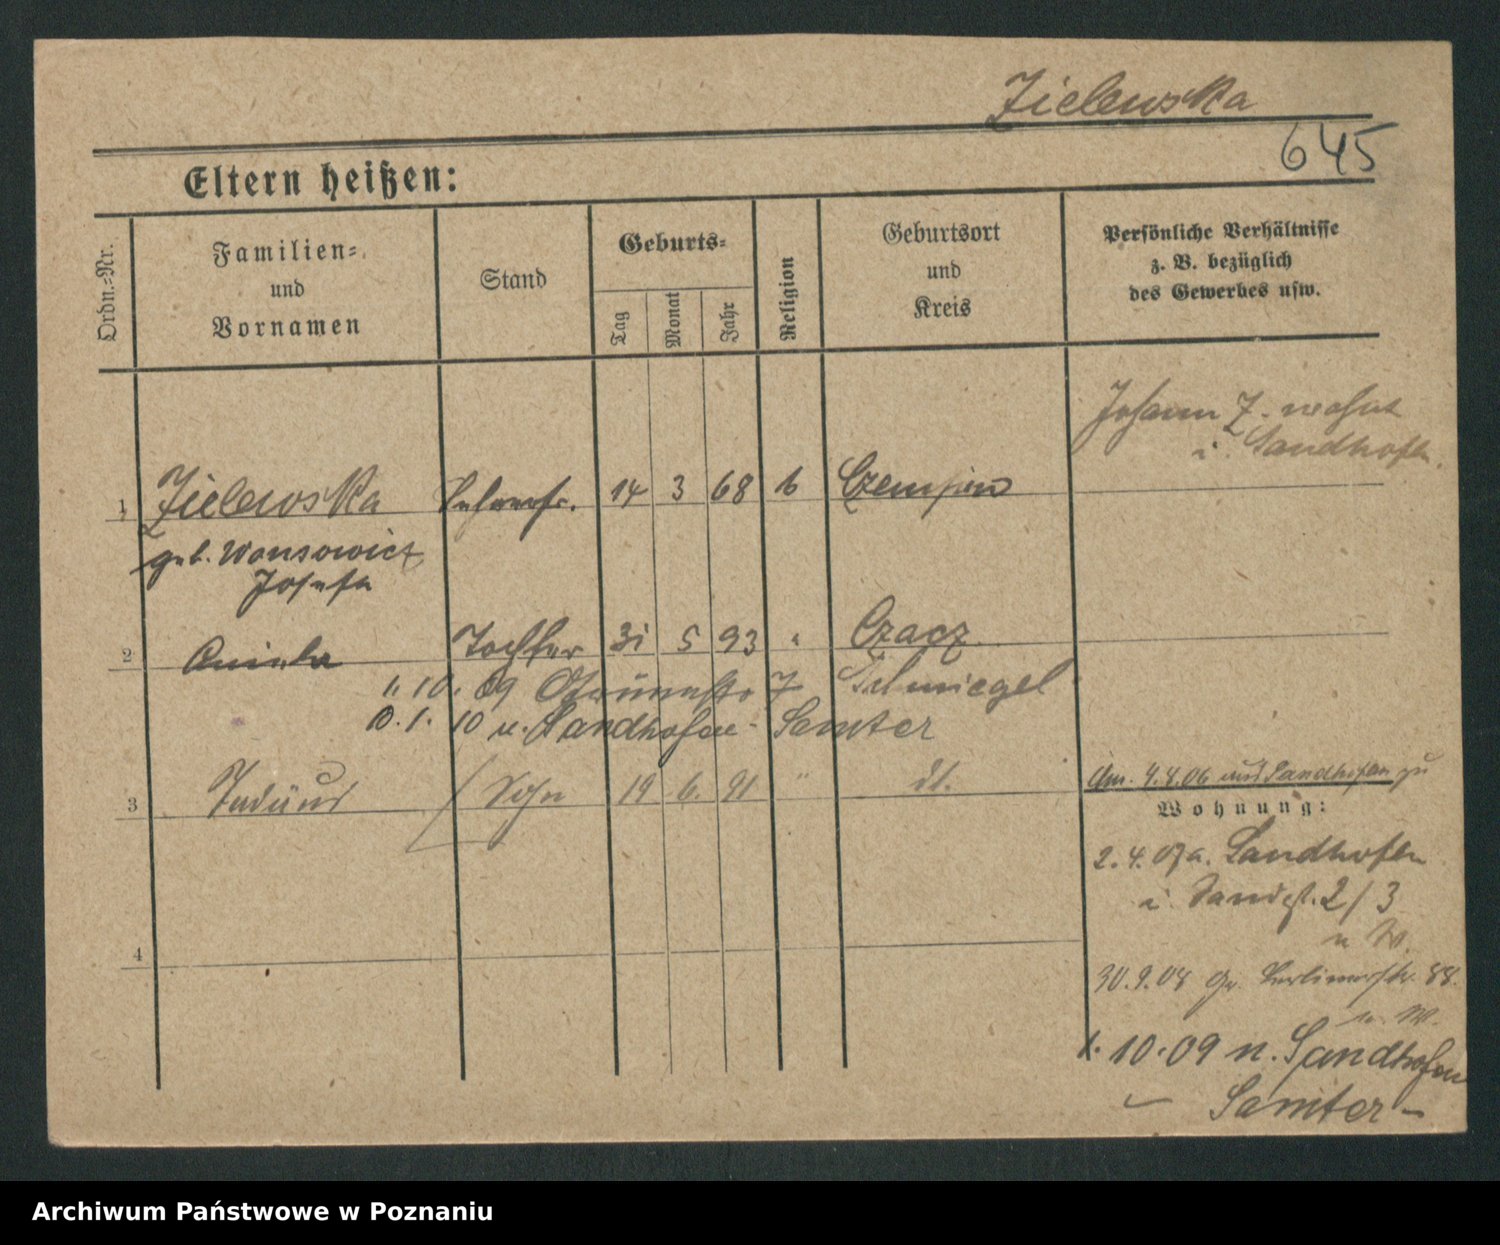 Zielewska
645
Eltern heißen:
Ordn.-Nr.
Familien-
und
Vornamen
Stand
Geburts-
Tag
Monat
Jahr
Religion
Geburtsort
und
Kreis
Persönliche Verhältnisse
z. B. bezüglich
des Gewerbes usw.
Johann Z. wohnt
i. Sandhofen.
1 Zielewska 14 3 68 Czempin
geb. Wonsowicz
Josefa
2 Aniela Tochter 31 5 93 " Czacz
1. 10. 09 7 Schmiegel
10. 1. 10 n. Sandhofen - Samter
3 Sohn 19 6. 91 " dt.
4.8.06 Sandhofen zu
Wohnung:
2.4.07 a. Sandhofen
i. 2/3
n W.
4
30.9.08 Gr. Berlinerstr. 88.
n. W.
1. 10. 09 n. Sandhofen
– Samter –